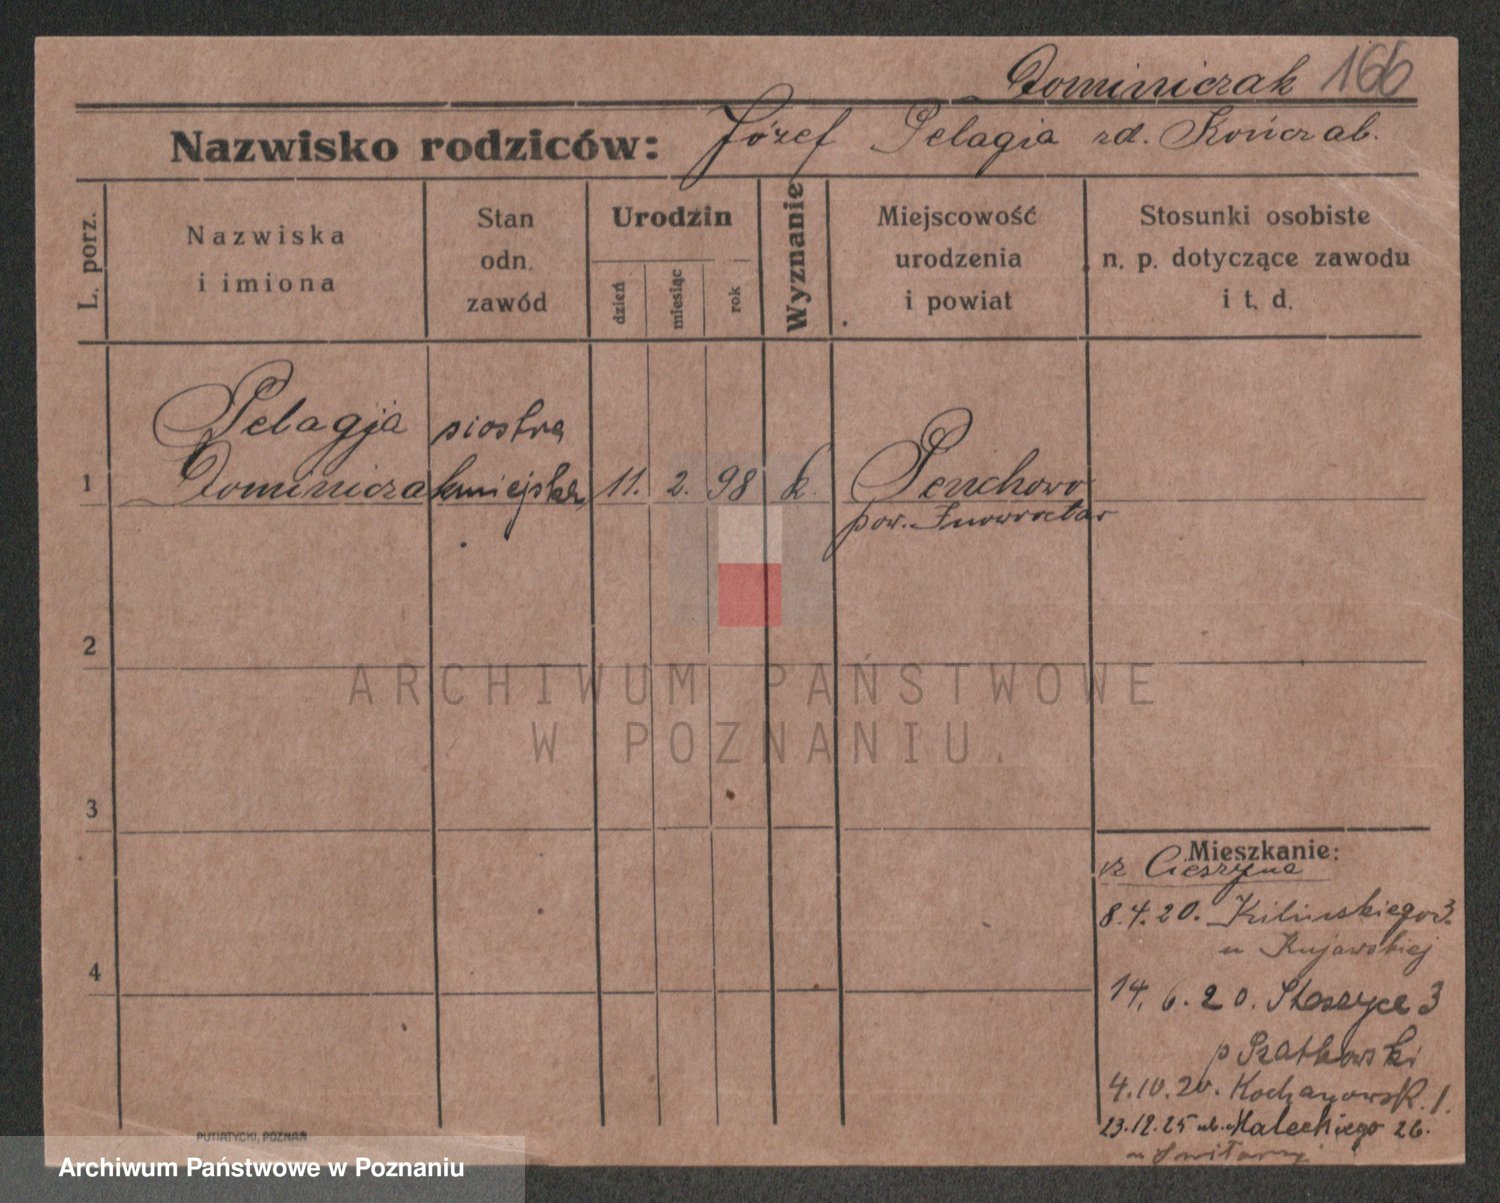 Dominiczak 166
Nazwisko rodziców: Józef Pelagia zd. Kończab.
L. porz.
Nazwiska
i imiona
Stan
odn.
zawód
Urodzin
dzień
miesiąc
rok
Wyznanie
Miejscowość
urodzenia
i powiat
Stosunki osobiste
n. p. dotyczące zawodu
i t. d.
Pelagja siostra
1 Dominiczak miejska 11. 2. 98 k. Penchowo
pow. Inowrocław
2
ARCHIWUM PAŃSTWOWE
W POZNANIU
3
Mieszkanie:
z Cieszyna
8.4.20. Kilińskiego 3.
u Kujawskiej
4
14. 6. 20. Staszyca 3
p Szatkowski
4.10.20. Kochanowsk. 1.
23.12.25 ul. Małeckiego 26.
PUTIATYCKI, POZNAŃ
Archiwum Państwowe w Poznaniu